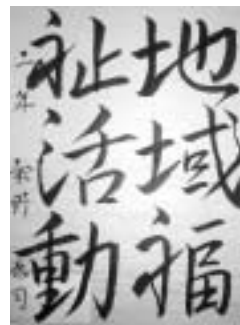 地域福
祉活動
二年